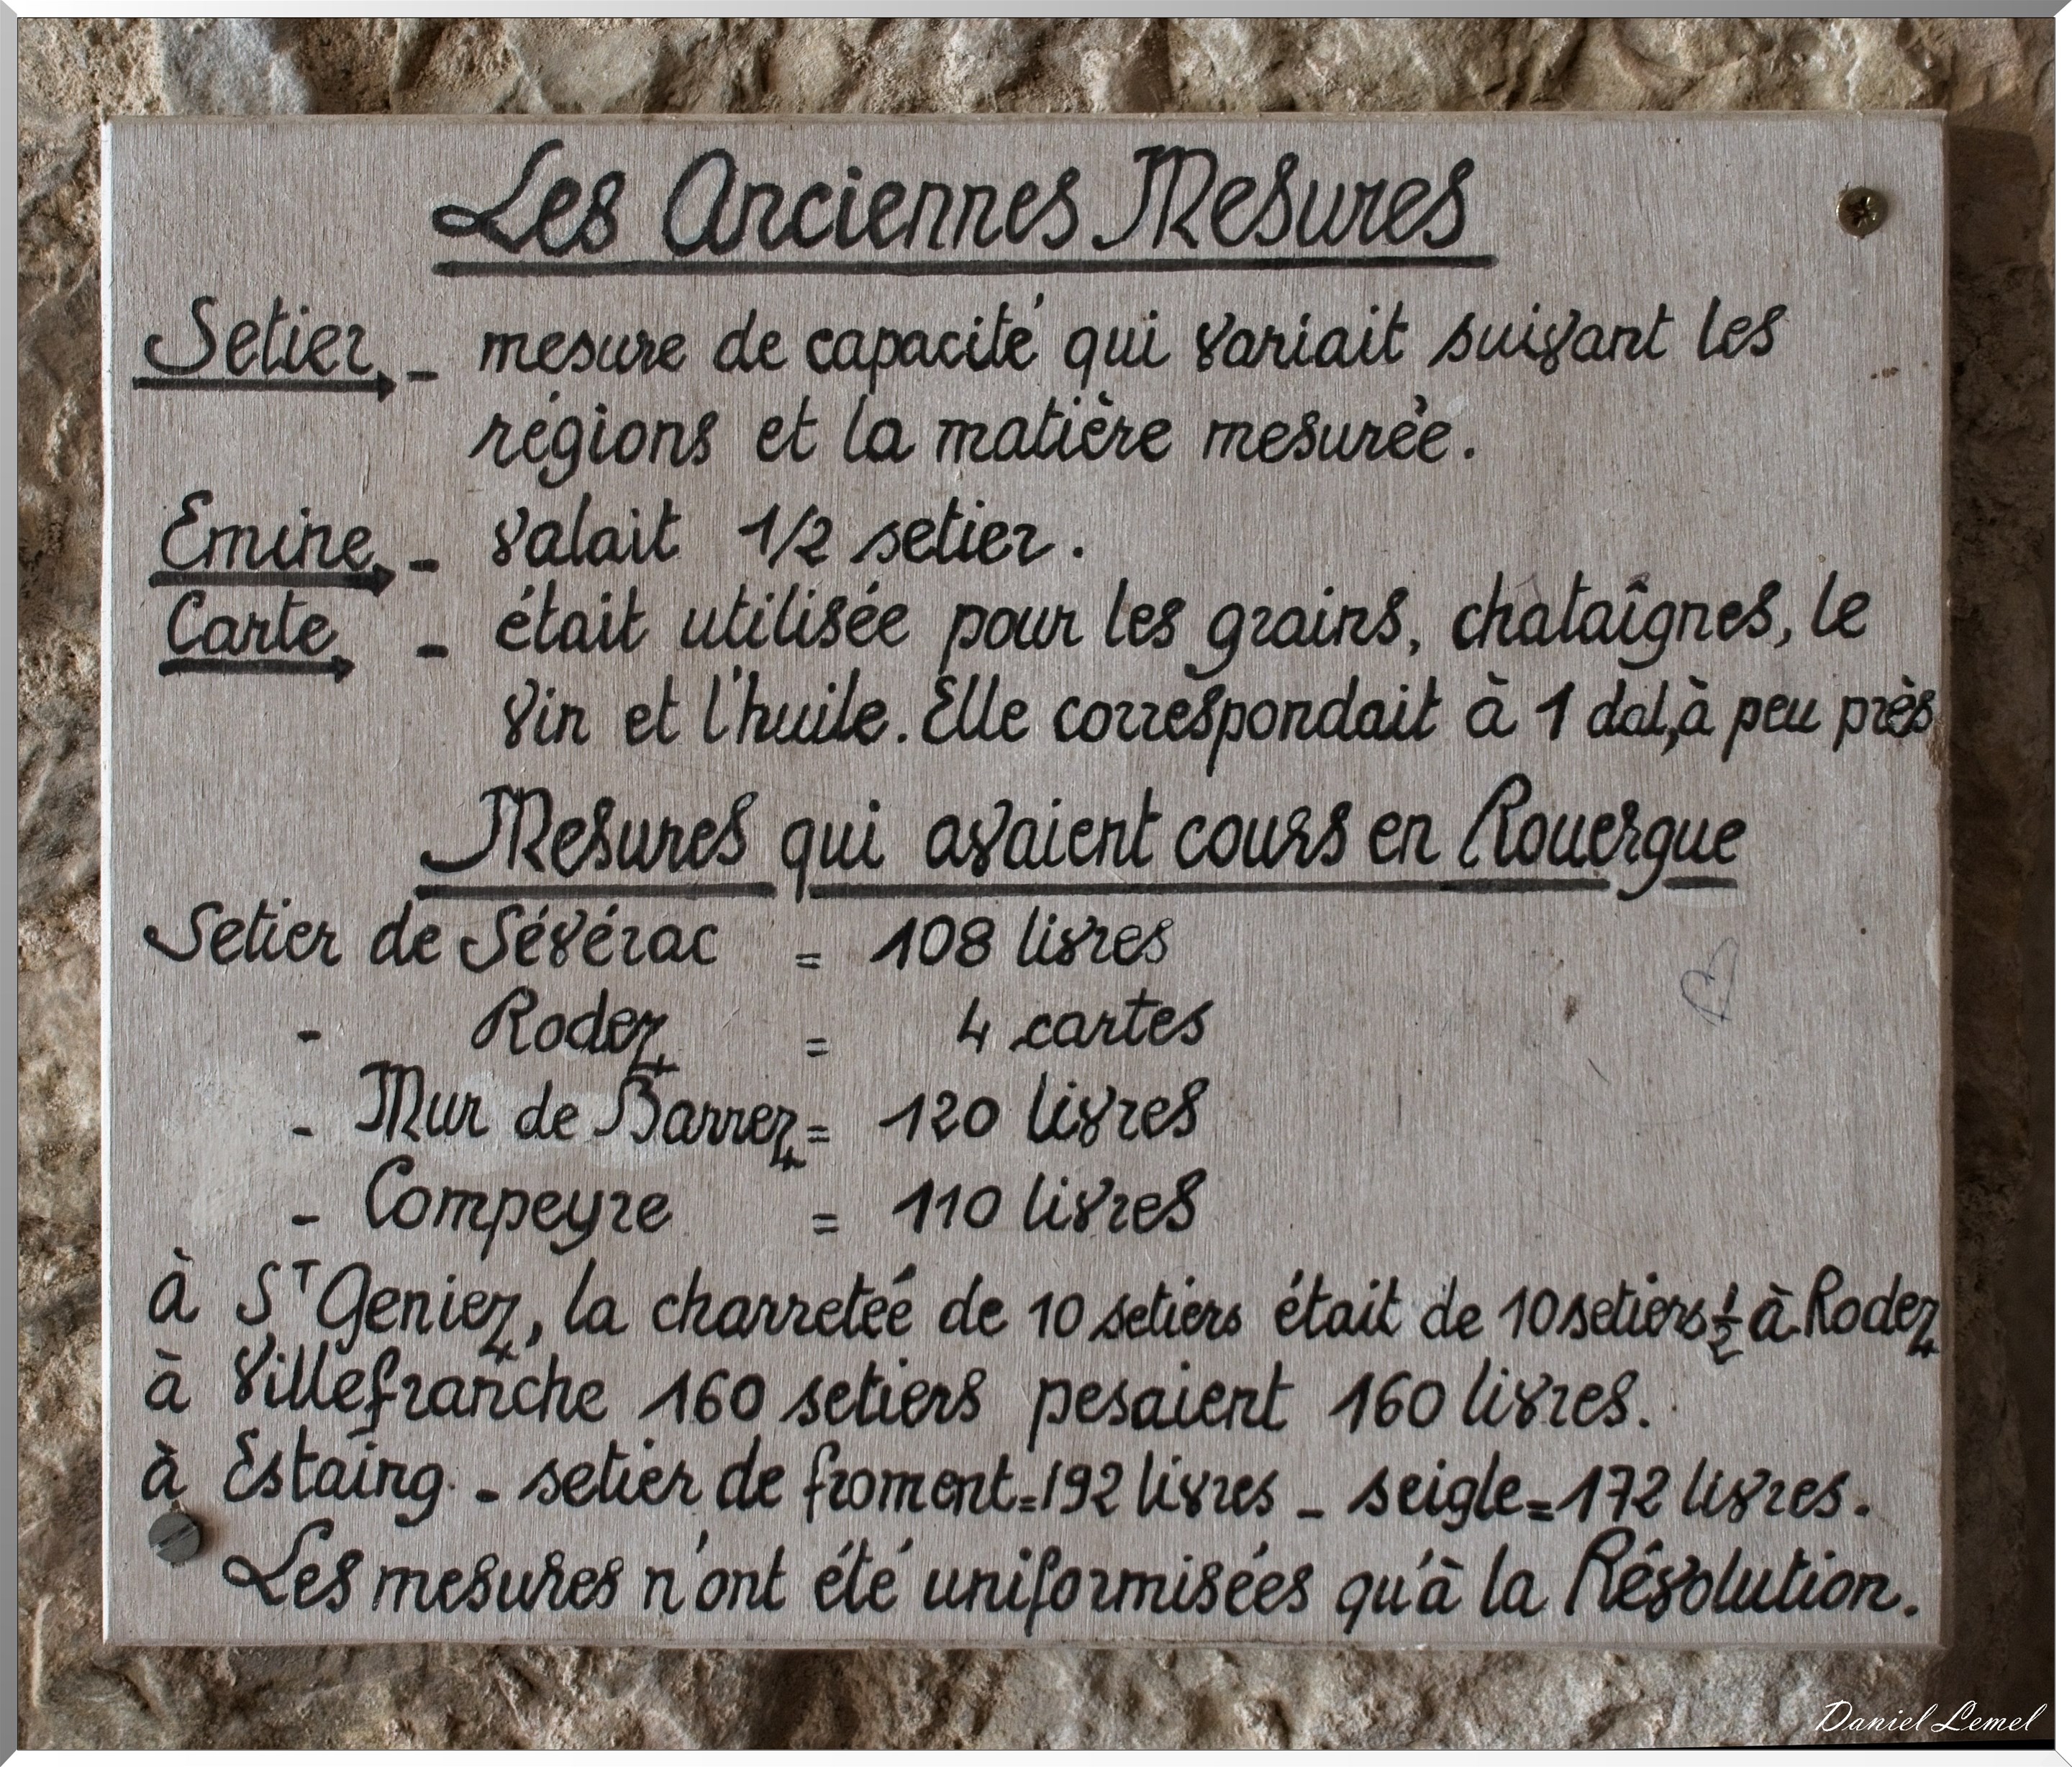 Les Anciennes Mesures
Setier - mesure de capacité qui variait suivant les
régions et la matière mesurée.
Emine - valait 1/2 setier.
Carte - était utilisée pour les grains, chataîgnes, le
vin et l'huile. Elle correspondait à 1 dal, à peu près
Mesures qui avaient cours en Rouergue
Setier de Sévérac = 108 livres
- Rodez = 4 cartes
- Mur de Barrez = 120 livres
- Compeyre = 110 livres
à St Geniez, la charretée de 10 setiers était de 10 setiers 1/2 à Rodez
à Villefranche 160 setiers pesaient 160 livres.
à Estaing - setier de froment = 192 livres - seigle = 172 livres.
Les mesures n'ont été uniformisées qu'à la Révolution.
Daniel Lemel